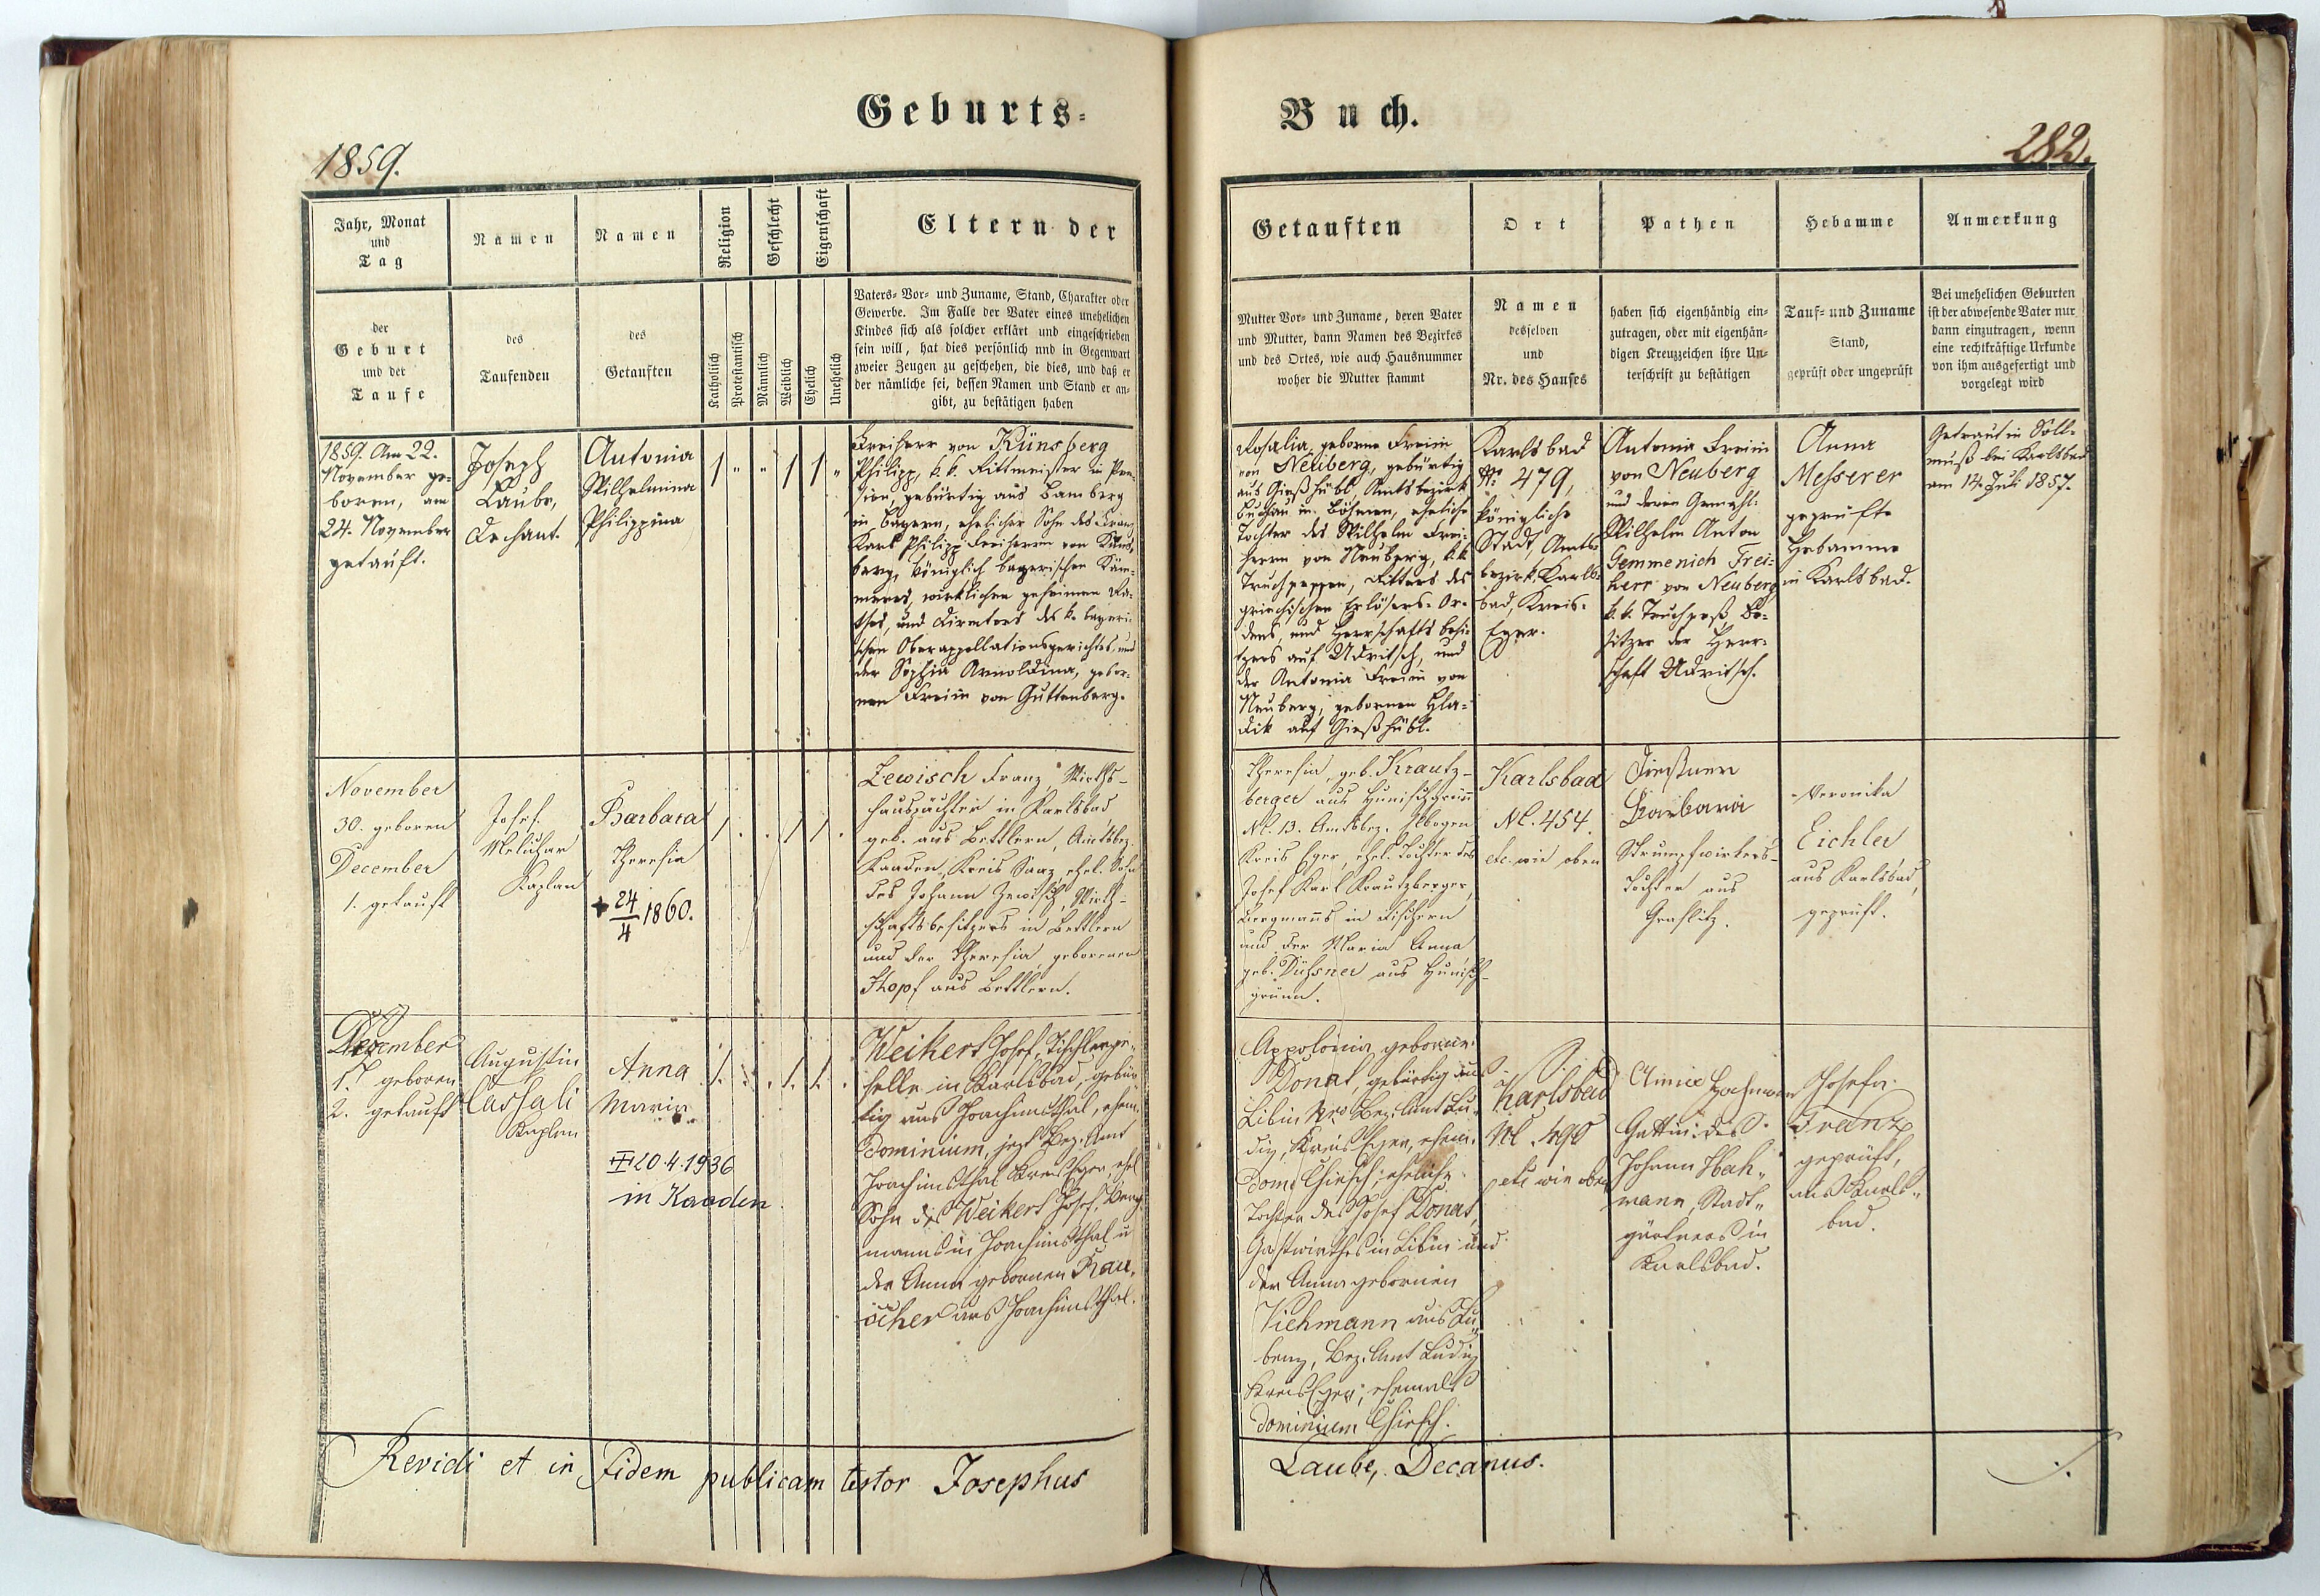 Geburts-
Buch.
1859.
282.
Jahr, Monat
und
Tag
Namen
Namen
Religion
Geschlecht
Eigenschaft
Eltern der
der
Geburt
und der
Taufe
des
Taufenden
des
Getauften
Katholisch
Protestantisch
Männlich
Weiblich
Ehelich
Unehelich
Vaters- Vor- und Zuname, Stand, Charakter oder
Gewerbe. Im Falle der Vater eines unehelichen
Kindes sich als solcher erklärt und eingeschrieben
sein will, hat dies persönlich und in Gegenwart
zweier Zeugen zu geschehen, die dies, und daß er
der nämliche sei, dessen Namen und Stand er an-
gibt, zu bestätigen haben
Getauften
Ort
Pathen
Hebamme
Anmerkung
Mutter Vor- und Zuname, deren Vater
und Mutter, dann Namen des Bezirkes
und des Ortes, wie auch Hausnummer
woher die Mutter stammt
Namen
desselven
und
Nr. des Hauses
haben sich eigenhändig ein-
zutragen, oder mit eigenhän-
digen Kreuzzeichen ihre Un-
terschrift zu bestätigen
Tauf- und Zuname
Stand,
geprüft oder ungeprüft
Bei unehelichen Geburten
ist der abwesende Vater nur
dann einzutragen, wenn
eine rechtkräftige Urkunde
von ihm ausgefertigt und
vorgelegt wird
1859. Am 22.
November ge-
boren, am
24. November
getauft.
Joseph
Laube,
Dechant.
Antonia
Wilhelmina
Philippina
1 " " 1 1 "
Freiherr von Künsberg
Philipp, k. k. Rittmeister in Pen-
sion, gebürtig aus Bamberg
in Bayern, ehelicher Sohn des Franz
Karl Philipp Freiherrn von Küns-
berg, königlich bayerischen Käm-
merers, wirklichen geheimen Ra-
thes, und Direktors des k. bayeri-
schen Oberappellationsgerichtes, und
der Sophia Arnoldina, gebor-
nen Freiin von Guttenberg.
Rosalia, geborne Freiin
von Neuberg, gebürtig
aus Gießhübl, Amtsbezirk
Buchau in Böhmen, eheliche
Tochter des Wilhelm Frei-
herrn von Neuberg, k.k.
Truchsessen, Ritters des
griechischen Erlösers-Or-
dens, und Herrschaftsbesi-
tzers auf Udritsch, und
der Antonia Freiin von
Neuberg, gebornen Hla-
dik auf Gießhübl.
Karlsbad
No. 479,
königliche
Stadt, Amts-
bezirk Karls-
bad, Kreis
Eger.
Antonia Freiin
von Neuberg
und deren Gemahl:
Wilhelm Anton
Gemmenich Frei-
herr von Neuberg
k.k. Truchseß, Be-
sitzer der Herr-
schaft Udritsch.
Anna
Messerer
geprüfte
Hebamme
in Karlsbad.
Getraut in Soll-
muß bei Karlsbad
am 14. Juli 1857.
November
30. geboren
December
1. getauft
Josef
Melichar
Kaplan
Barbara
Theresia
+ 24/4 1860.
1 . . 1 1 .
Zewisch Franz, Wirths-
hauspächter in Karlsbad,
geb. aus Bettlern, Amtsbez.
Kaaden, Kreis Saaz, ehel. Sohn
des Johann Zewisch, Wirth-
schaftsbesitzers in Bettlern
und der Theresia, geborenen
Hopf aus Bettlern.
Theresia, geb. Krautz-
berger aus
N. 13. Amtsbez. Elbogen
Kreis Eger, ehel. Tochter des
Josef Karl Krautzberger,
Bergmanns in Fischern
und der Maria Anna
geb. Düssner aus
grünn.
Karlsbad
N. 454.
etc. wie oben
Barbara
Strumpfwirkers-
Tochter aus
Graslitz.
Veronika
Eichler
aus Karlsbad,
geprüft.
Dezember
1. geboren
2. getauft
Augustin
Cassali
Kaplan
Anna
Maria
20.4.1936
in Kaaden
1. . . 1. 1. .
Weikert Josef, Tischlerge-
selle in Karlsbad, gebür-
tig aus Joachimsthal, ehem.
Dominium, jezt Bez. Amt
Joachimsthal Kreis Eger, ehel
Sohn des Weikert Josef, Berg-
manns in Joachimsthal u
der Anna gebornen Rau-
scher aus Joachimsthal.
Appolonia geborene
Donat, gebürtig aus
Libin Bez. Amt Lu-
diz, Kreis Eger, ehem.
Dom. Chiesch, eheliche
Tochter des Josef Donat,
Gastwirthes in Libin und
der Anna gebornen
Viehmann aus Lu-
benz, Bez. Amt Ludiz
Kreis Eger, ehemals
Dominium Chiesch.
Karlsbad
N 490
etc wie oben
Gattin des
Johann Hoch-
mann, Stadt-
gärtners in
Karlsbad.
Josefa
Franz
geprüft,
aus Karls-
bad.
Revidi et in fidem publicam testor Josephus
Laube, Decanus.